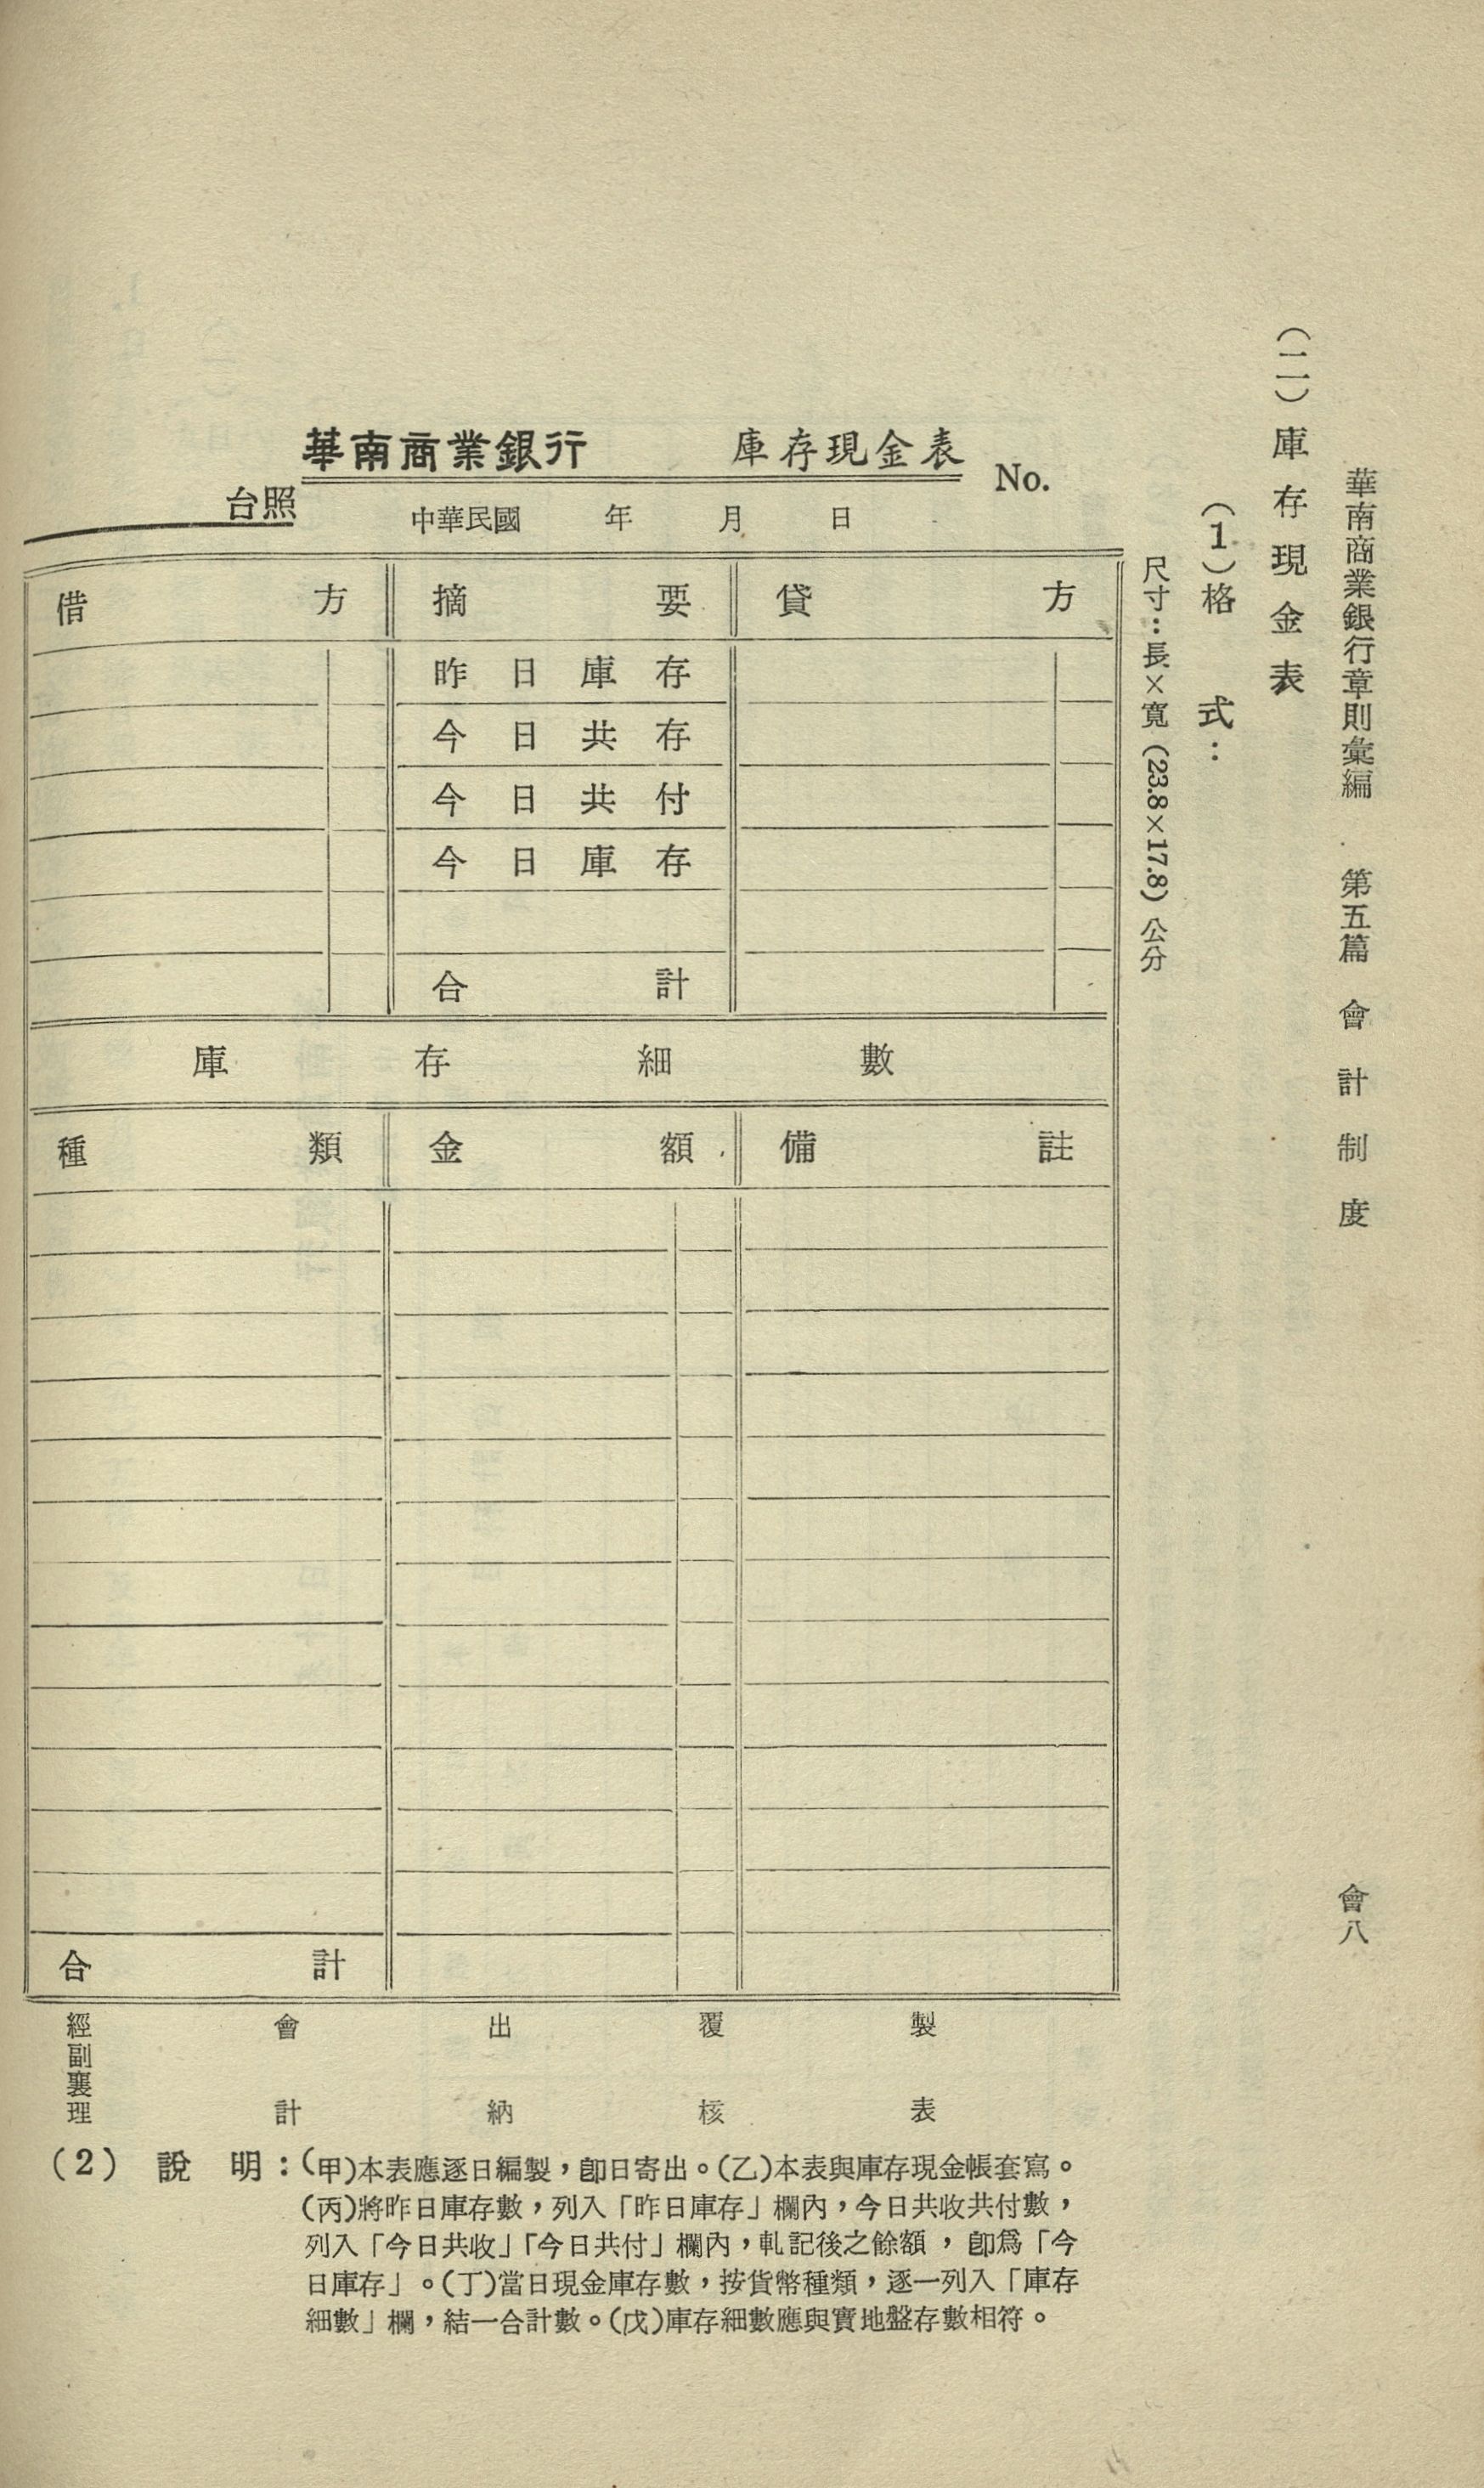 華南商業銀行章則彙編 第五篇 會計制度 會八
(二)庫存現金表
(1)格 式：
尺寸：長×寬 (23.8×17.8) 公分
華南商業銀行 庫存現金表 No.
台照
中華民國 年 月 日
借方 摘要 貸方
昨日庫存
今日共存
今日共付
今日庫存
合計
庫存細數
種類 金額 備註
合計
經副襄理 會計 出納 覆核 製表
(2) 說 明：(甲)本表應逐日編製，卽日寄出。(乙)本表與庫存現金帳套寫。
(丙)將昨日庫存數，列入「昨日庫存」欄內，今日共收共付數，
列入「今日共收」「今日共付」欄內，軋記後之餘額，卽爲「今
日庫存」。(丁)當日現金庫存數，按貨幣種類，逐一列入「庫存
細數」欄，結一合計數。(戊)庫存細數應與實地盤存數相符。